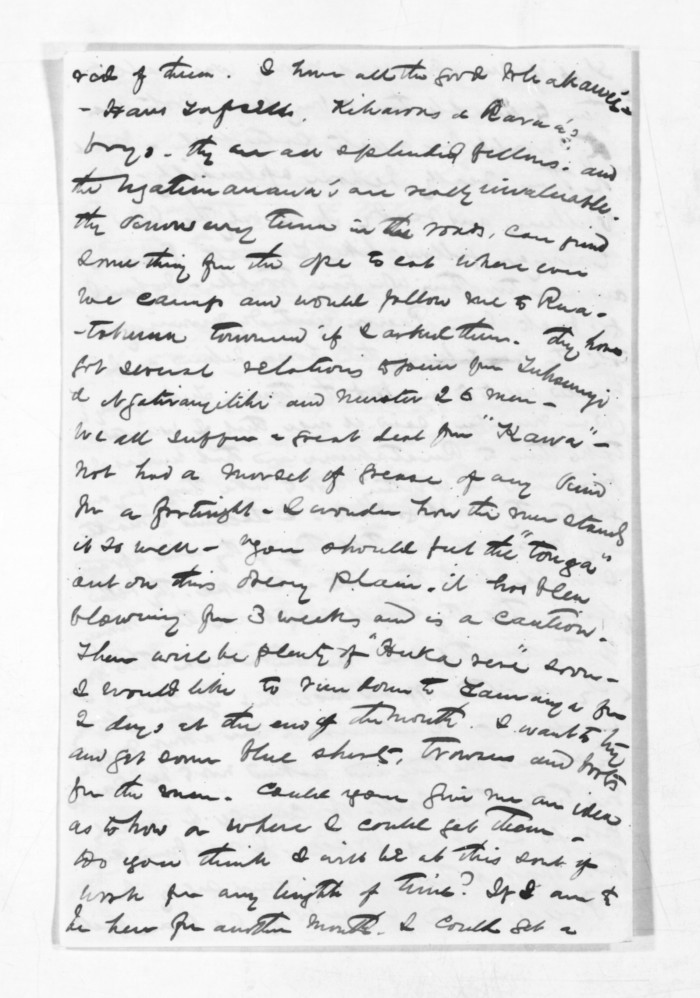 rid of them. I have all the good Whakaue's
- Hans Tapsell. Kiharoas & Rawa's
boys. they are all splendid fellows. and
the Ngatimanawa's are really invaluable.
they know every turn in the roads, can find
something for the ope to eat where ever
we camp and would follow me to Rua-
-tahuna tomorrow if I asked them. they have
got several relations to join from
& Ngatirangitihi and muster 26 men -
We all suffer a great deal from "Kawa" -
not had a morsel of grease of any kind
for a fortnight - I wonder how the men stand
it so well - "you should feel the "tonga"
out on this dreary plain. it has been
blowing for 3 weeks and is a caution.
There will be plenty of "Huka rere" soon -
I would like to run down to Tauranga for
2 days at the end of the month. I want to try
and get some blue shirts, trowsers and boots
for the men. Could you give me an idea
as to how or where I could get them -
Do you think I will be at this sort of
work for any length of time? If I am to
be here for another month. I could get a